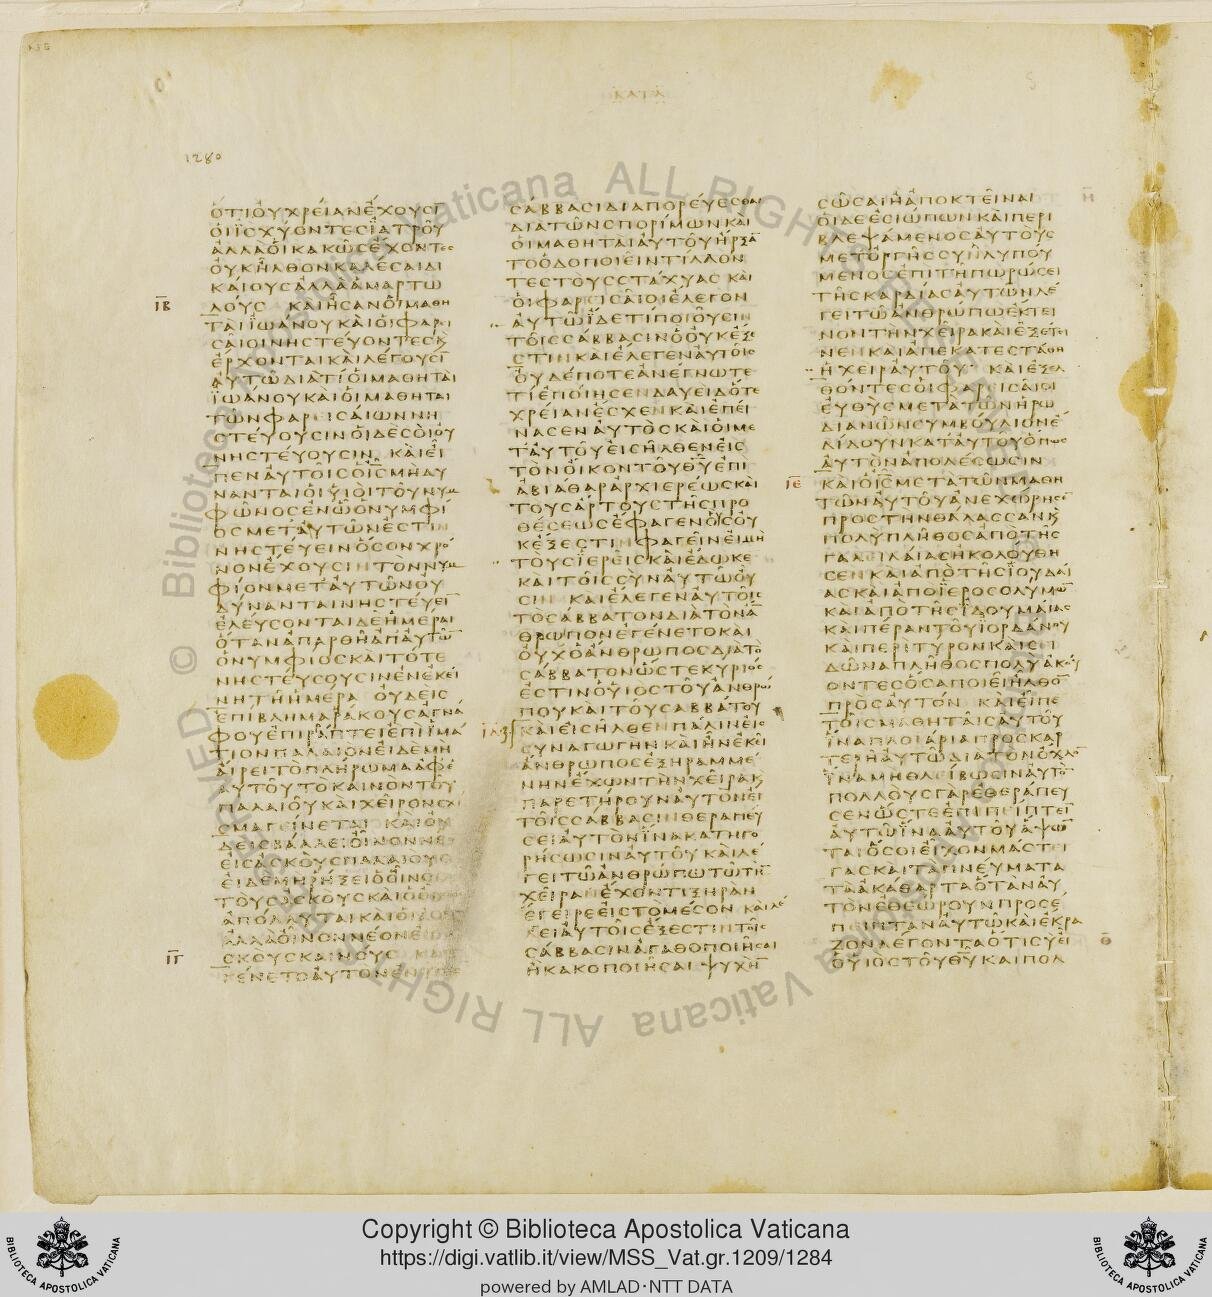 ΚΑΤΑ
1280
ΟΤΙ ΟΥ ΧΡΕΙΑΝ ΕΧΟΥΣΙ̅
ΟΙ ΙΣΧΥΟΝΤΕΣ ΙΑΤΡΟΥ
ΑΛΛΑ ΟΙ ΚΑΚΩΣ ΕΧΟΝΤΕΣ
ΟΥΚ ΗΛΘΟΝ ΚΑΛΕΣΑΙ ΔΙ
ΚΑΙΟΥΣ ΑΛΛΑ ΑΜΑΡΤΩ
ΙΒ
ΛΟΥΣ ΚΑΙ ΗΣΑΝ ΟΙ ΜΑΘΗ
ΤΑΙ ΙΩΑΝΟΥ ΚΑΙ ΟΙ ΦΑΡΕΙ
ΣΑΙΟΙ ΝΗΣΤΕΥΟΝΤΕΣ Κ
ΕΡΧΟΝΤΑΙ ΚΑΙ ΛΕΓΟΥΣΙ̅
ΑΥΤΩ ΔΙΑ ΤΙ ΟΙ ΜΑΘΗΤΑΙ
ΙΩΑΝΟΥ ΚΑΙ ΟΙ ΜΑΘΗΤΑΙ
ΤΩΝ ΦΑΡΕΙΣΑΙΩΝ ΝΗ
ΣΤΕΥΟΥΣΙΝ ΟΙ ΔΕ ΣΟΙ ΟΥ
ΝΗΣΤΕΥΟΥΣΙΝ ΚΑΙ ΕΙ
ΠΕΝ ΑΥΤΟΙΣ Ο Ι̅Σ̅ ΜΗ ΔΥ
ΝΑΝΤΑΙ ΟΙ ΥΙΟΙ ΤΟΥ ΝΥΜ
ΦΩΝΟΣ ΕΝ Ω Ο ΝΥΜΦΙ
ΟΣ ΜΕΤ ΑΥΤΩΝ ΕΣΤΙΝ
ΝΗΣΤΕΥΕΙΝ ΟΣΟΝ ΧΡΟ
ΝΟΝ ΕΧΟΥΣΙΝ ΤΟΝ ΝΥΜ
ΦΙΟΝ ΜΕΤ ΑΥΤΩΝ ΟΥ
ΔΥΝΑΝΤΑΙ ΝΗΣΤΕΥΕΙ̅
ΕΛΕΥΣΟΝΤΑΙ ΔΕ ΗΜΕΡΑΙ
ΟΤΑΝ ΑΠΑΡΘΗ ΑΠ ΑΥΤΩ̅
Ο ΝΥΜΦΙΟΣ ΚΑΙ ΤΟΤΕ
ΝΗΣΤΕΥΣΟΥΣΙΝ ΕΝ ΕΚΕΙ
ΝΗ ΤΗ ΗΜΕΡΑ ΟΥΔΕΙΣ
ΕΠΙΒΛΗΜΑ ΡΑΚΟΥΣ ΑΓΝΑ
ΦΟΥ ΕΠΙΡΑΠΤΕΙ ΕΠΙ ΙΜΑ
ΤΙΟΝ ΠΑΛΑΙΟΝ ΕΙ ΔΕ ΜΗ
ΑΙΡΕΙ ΤΟ ΠΛΗΡΩΜΑ ΑΦ Ε
ΑΥΤΟΥ ΤΟ ΚΑΙΝΟΝ ΤΟΥ
ΠΑΛΑΙΟΥ ΚΑΙ ΧΕΙΡΟΝ ΣΧΙ
ΣΜΑ ΓΕΙΝΕΤΑΙ ΚΑΙ ΟΥ
ΔΕΙΣ ΒΑΛΛΕΙ ΟΙΝΟΝ ΝΕΟ
ΕΙΣ ΑΣΚΟΥΣ ΠΑΛΑΙΟΥΣ
ΕΙ ΔΕ ΜΗ ΡΗΞΕΙ Ο ΟΙΝΟΣ
ΤΟΥΣ ΑΣΚΟΥΣ ΚΑΙ Ο ΟΙΝΟΣ
ΑΠΟΛΛΥΤΑΙ ΚΑΙ ΟΙ ΑΣΚΟΙ
ΑΛΛΑ ΟΙΝΟΝ ΝΕΟΝ ΕΙΣ Α
ΙΓ
ΣΚΟΥΣ ΚΑΙΝΟΥΣ ΚΑΙ Ε
ΓΕΝΕΤΟ ΑΥΤΟΝ ΕΝ ΤΟΙΣ
ΣΑΒΒΑΣΙ ΔΙΑΠΟΡΕΥΕΣΘΑΙ
ΔΙΑ ΤΩΝ ΣΠΟΡΙΜΩΝ ΚΑΙ
ΟΙ ΜΑΘΗΤΑΙ ΑΥΤΟΥ ΗΡΞΑ̅
ΤΟ ΟΔΟΠΟΙΕΙΝ ΤΙΛΛΟΝ
ΤΕΣ ΤΟΥΣ ΣΤΑΧΥΑΣ ΚΑΙ
ΟΙ ΦΑΡΕΙΣΑΙΟΙ ΕΛΕΓΟΝ
ΑΥΤΩ ΙΔΕ ΤΙ ΠΟΙΟΥΣΙΝ
ΤΟΙΣ ΣΑΒΒΑΣΙΝ Ο ΟΥΚ ΕΞΕ
ΣΤΙΝ ΚΑΙ ΕΛΕΓΕΝ ΑΥΤΟΙΣ
ΟΥΔΕΠΟΤΕ ΑΝΕΓΝΩΤΕ
ΤΙ ΕΠΟΙΗΣΕΝ ΔΑΥΕΙΔ ΟΤΕ
ΧΡΕΙΑΝ ΕΣΧΕΝ ΚΑΙ ΕΠΕΙ
ΝΑΣΕΝ ΑΥΤΟΣ ΚΑΙ ΟΙ ΜΕ
Τ ΑΥΤΟΥ ΕΙΣΗΛΘΕΝ ΕΙΣ
ΤΟΝ ΟΙΚΟΝ ΤΟΥ Θ̅Υ̅ ΕΠΙ
ΑΒΙΑΘΑΡ ΑΡΧΙΕΡΕΩΣ ΚΑΙ
ΤΟΥΣ ΑΡΤΟΥΣ ΤΗΣ ΠΡΟ
ΘΕΣΕΩΣ ΕΦΑΓΕΝ ΟΥΣ ΟΥ
Κ ΕΞΕΣΤΙΝ ΦΑΓΕΙΝ ΕΙ ΜΗ
ΤΟΥΣ ΙΕΡΕΙΣ ΚΑΙ ΕΔΩΚΕ
ΚΑΙ ΤΟΙΣ ΣΥΝ ΑΥΤΩ ΟΥ
ΣΙΝ ΚΑΙ ΕΛΕΓΕΝ ΑΥΤΟΙΣ
ΤΟ ΣΑΒΒΑΤΟΝ ΔΙΑ ΤΟΝ Α̅
ΘΡΩΠΟΝ ΕΓΕΝΕΤΟ ΚΑΙ
ΟΥΧ Ο ΑΝΘΡΩΠΟΣ ΔΙΑ ΤΟ
ΣΑΒΒΑΤΟΝ ΩΣΤΕ ΚΥΡΙΟΣ
ΕΣΤΙΝ Ο ΥΙΟΣ ΤΟΥ ΑΝΘΡΩ
ΠΟΥ ΚΑΙ ΤΟΥ ΣΑΒΒΑΤΟΥ
ΙΔ
ΚΑΙ ΕΙΣΗΛΘΕΝ ΠΑΛΙΝ ΕΙΣ
ΣΥΝΑΓΩΓΗΝ ΚΑΙ ΗΝ ΕΚΕΙ
ΑΝΘΡΩΠΟΣ ΕΞΗΡΑΜΜΕ
ΝΗΝ ΕΧΩΝ ΤΗΝ ΧΕΙΡΑ Κ
ΠΑΡΕΤΗΡΟΥΝ ΑΥΤΟΝ ΕΙ
ΤΟΙΣ ΣΑΒΒΑΣΙΝ ΘΕΡΑΠΕΥ
ΣΕΙ ΑΥΤΟΝ ΙΝΑ ΚΑΤΗΓΟ
ΡΗΣΩΣΙΝ ΑΥΤΟΥ ΚΑΙ ΛΕ
ΓΕΙ ΤΩ ΑΝΘΡΩΠΩ ΤΩ ΤΗ̅
ΧΕΙΡΑ ΕΧΟΝΤΙ ΞΗΡΑΝ
ΕΓΕΙΡΕ ΕΙΣ ΤΟ ΜΕΣΟΝ ΚΑΙ ΛΕ
ΓΕΙ ΑΥΤΟΙΣ ΕΞΕΣΤΙΝ ΤΟΙΣ
ΣΑΒΒΑΣΙΝ ΑΓΑΘΟΠΟΙΗΣΑΙ
Η ΚΑΚΟΠΟΙΗΣΑΙ ΨΥΧΗ̅
Η
ΣΩΣΑΙ Η ΑΠΟΚΤΕΙΝΑΙ
ΟΙ ΔΕ ΕΣΙΩΠΩΝ ΚΑΙ ΠΕΡΙ
ΒΛΕΨΑΜΕΝΟΣ ΑΥΤΟΥΣ
ΜΕΤ ΟΡΓΗΣ ΣΥΝΛΥΠΟΥ
ΜΕΝΟΣ ΕΠΙ ΤΗ ΠΩΡΩΣΕΙ
ΤΗΣ ΚΑΡΔΙΑΣ ΑΥΤΩΝ ΛΕ
ΓΕΙ ΤΩ ΑΝΘΡΩΠΩ ΕΚΤΕΙ
ΝΟΝ ΤΗΝ ΧΕΙΡΑ ΚΑΙ ΕΞΕΤΕΙ
ΝΕΝ ΚΑΙ ΑΠΕΚΑΤΕΣΤΑΘΗ
Η ΧΕΙΡ ΑΥΤΟΥ ΚΑΙ ΕΞΕΛ
ΘΟΝΤΕΣ ΟΙ ΦΑΡΕΙΣΑΙΟΙ
ΕΥΘΥΣ ΜΕΤΑ ΤΩΝ ΗΡΩ
ΔΙΑΝΩΝ ΣΥΜΒΟΥΛΙΟΝ Ε
ΔΙΔΟΥΝ ΚΑΤ ΑΥΤΟΥ ΟΠΩΣ
ΑΥΤΟΝ ΑΠΟΛΕΣΩΣΙΝ
ΙΕ
ΚΑΙ Ο Ι̅Σ̅ ΜΕΤΑ ΤΩΝ ΜΑΘΗ
ΤΩΝ ΑΥΤΟΥ ΑΝΕΧΩΡΗΣΕ
ΠΡΟΣ ΤΗΝ ΘΑΛΑΣΣΑΝ Κ
ΠΟΛΥ ΠΛΗΘΟΣ ΑΠΟ ΤΗΣ
ΓΑΛΕΙΛΑΙΑΣ ΗΚΟΛΟΥΘΗ
ΣΕΝ ΚΑΙ ΑΠΟ ΤΗΣ ΙΟΥΔΑΙ
ΑΣ ΚΑΙ ΑΠΟ ΙΕΡΟΣΟΛΥΜΩ̅
ΚΑΙ ΑΠΟ ΤΗΣ ΙΔΟΥΜΑΙΑΣ
ΚΑΙ ΠΕΡΑΝ ΤΟΥ ΙΟΡΔΑΝΟΥ
ΚΑΙ ΠΕΡΙ ΤΥΡΟΝ ΚΑΙ ΣΙ
ΔΩΝΑ ΠΛΗΘΟΣ ΠΟΛΥ ΑΚΟΥ
ΟΝΤΕΣ ΟΣΑ ΠΟΙΕΙ ΗΛΘΟ̅
ΠΡΟΣ ΑΥΤΟΝ ΚΑΙ ΕΙΠΕ
ΤΟΙΣ ΜΑΘΗΤΑΙΣ ΑΥΤΟΥ
ΙΝΑ ΠΛΟΙΑΡΙΑ ΠΡΟΣΚΑΡ
ΤΕΡΗ ΑΥΤΩ ΔΙΑ ΤΟΝ ΟΧΛΟ̅
ΙΝΑ ΜΗ ΘΛΕΙΒΩΣΙΝ ΑΥΤΟ̅
ΠΟΛΛΟΥΣ ΓΑΡ ΕΘΕΡΑΠΕΥ
ΣΕΝ ΩΣΤΕ ΕΠΙΠΕΙΠΤΕΙ̅
ΑΥΤΩ ΙΝΑ ΑΥΤΟΥ ΑΨΩ̅
ΤΑΙ ΟΣΟΙ ΕΙΧΟΝ ΜΑΣΤΕΙ
ΓΑΣ ΚΑΙ ΤΑ ΠΝΕΥΜΑΤΑ
ΤΑ ΑΚΑΘΑΡΤΑ ΟΤΑΝ ΑΥ
ΤΟΝ ΕΘΕΩΡΟΥΝ ΠΡΟΣΕ
ΠΕΙΠΤΑΝ ΑΥΤΩ ΚΑΙ ΕΚΡΑ
Θ
ΖΟΝ ΛΕΓΟΝΤΑ ΟΤΙ ΣΥ ΕΙ
Ο ΥΙΟΣ ΤΟΥ Θ̅Υ̅ ΚΑΙ ΠΟΛ
© Biblioteca Apostolica Vaticana ALL RIGHTS RESERVED
© Biblioteca Apostolica Vaticana ALL RIGHTS RESERVED
Copyright © Biblioteca Apostolica Vaticana
https://digi.vatlib.it/view/MSS_Vat.gr.1209/1284
powered by AMLAD·NTT DATA
BIBLIOTECA APOSTOLICA VATICANA
BIBLIOTECA APOSTOLICA VATICANA